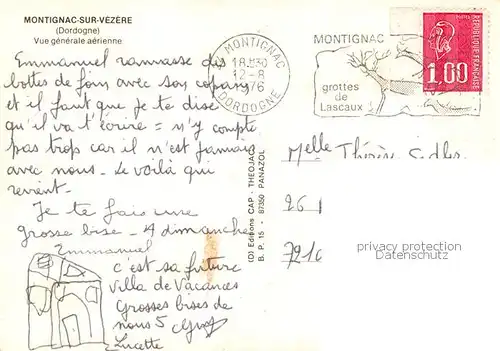 MONTIGNAC-SUR-VÉZÈRE
(Dordogne)
Vue générale aérienne
Emmanuel ramasse des
bottes de foin avec son copain
et il faut que je te dise
qu'il va t'écrire = n'y compte
pas trop car il n'est jamais
avec nous. Le voilà qui
revient.
Je te fais une
grosse bise - à dimanche
Emmanuel
c'est sa future
villa de Vacances
Grosses bises de
nous 5
Lucette
(D) Editions CAP - THEOJAC
B. P. 15 - 87350 PANAZOL
MONTIGNAC
18H30
12-8
DORDOGNE
MONTIGNAC
grottes
de
Lascaux
1,00
RÉPUBLIQUE FRANÇAISE
Melle Thérèse
privacy protection
Datenschutz